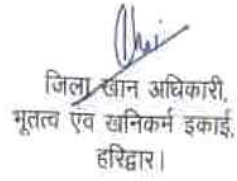 जिला खान अधिकारी,
भूतत्व एवं खनिकर्म इकाई,
हरिद्वार।